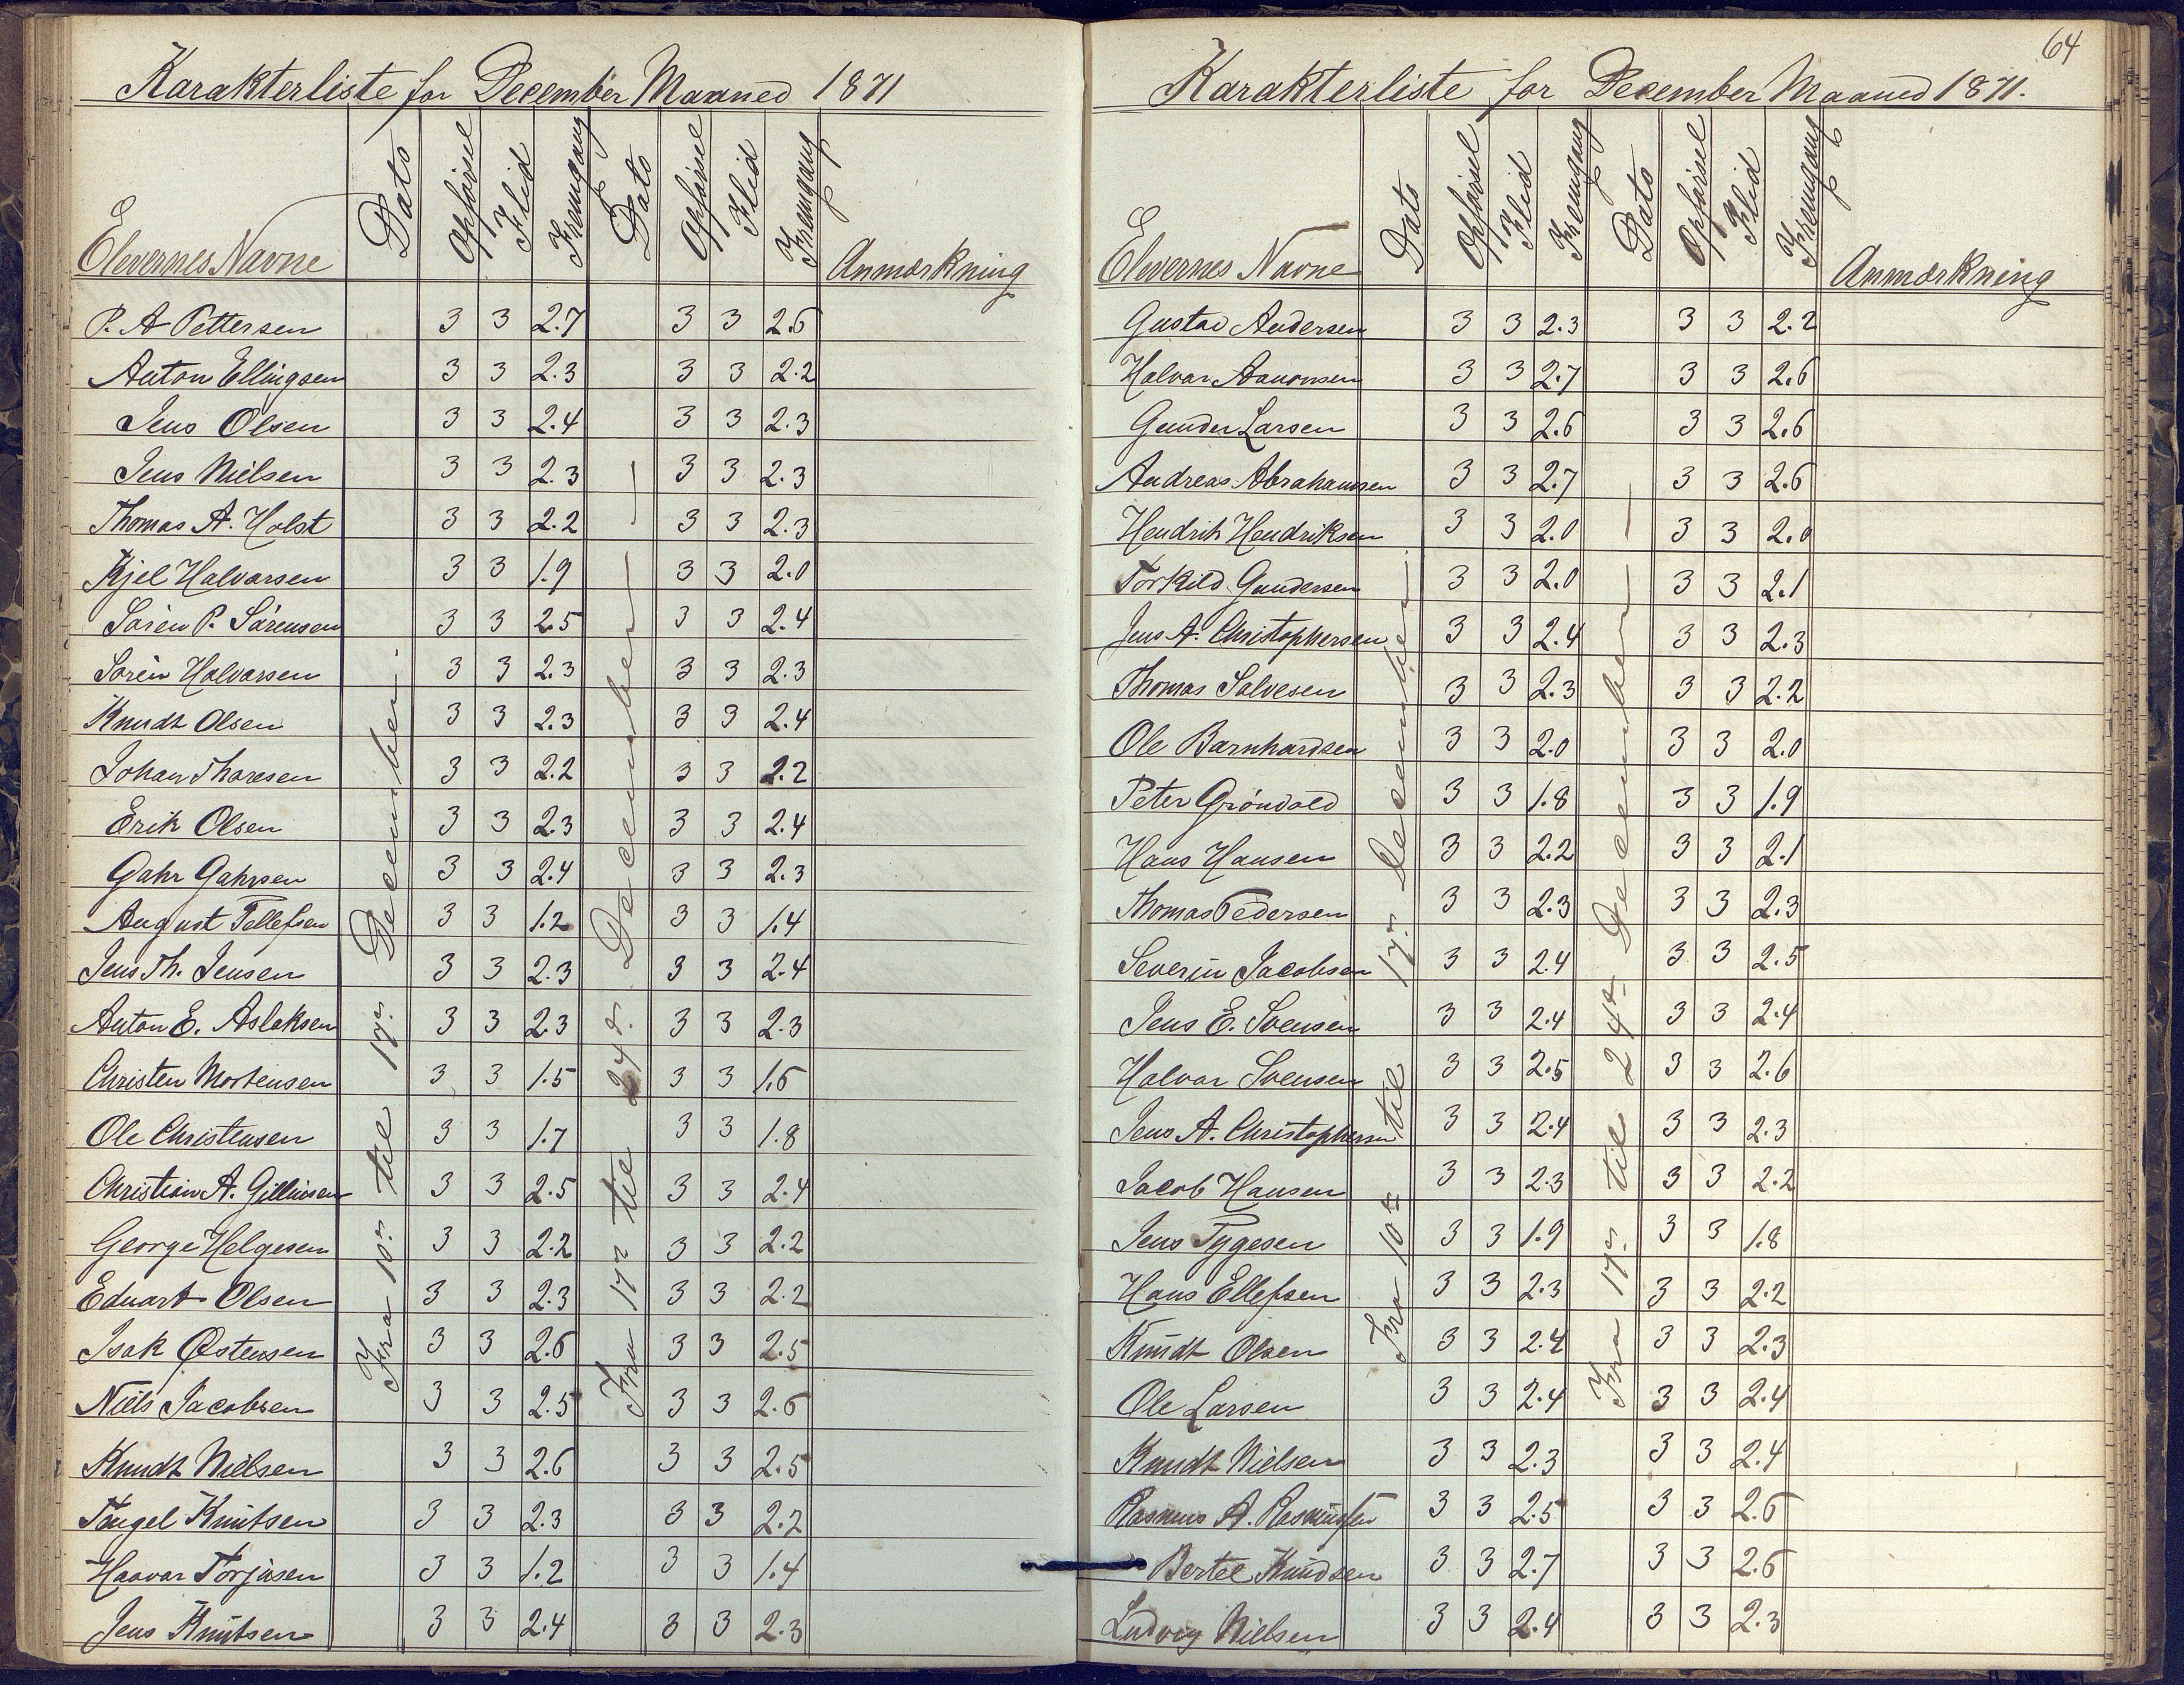 Karakterliste for December Maaned 1871
Elevernes Navne Dato Opførsel Flid Fremgang Dato Opførsel Flid Fremgang Anmærkning
Fra 10de til 17de December.
Fra 17de til 24de December
P. A Pettersen 3 3 2.7 3 3 2.6
Anton Ellingsen 3 3 2.3 3 3 2.2
Jens Olsen 3 3 2.4 3 3 2.3
Jens Nielsen 3 3 2.3 3 3 2.3
Thomas A. Holst 3 3 2.2 3 3 2.3
Kjel Halvorsen 3 3 1.9 3 3 2.0
Sören P. Sörensen 3 3 2.5 3 3 2.4
Sören Halvorsen 3 3 2.3 3 3 2.3
Knudt Olsen 3 3 2.3 3 3 2.4
Johan Thoresen 3 3 2.2 3 3 2.2
Erik Olsen 3 3 2.3 3 3 2.4
Gahr Gahrsen 3 3 2.4 3 3 2.3
August Tellefsen 3 3 1.2 3 3 1.4
Jens Th. Jensen 3 3 2.3 3 3 2.4
Anton E. Aslaksen 3 3 2.3 3 3 2.3
Christen Mortensen 3 3 1.5 3 3 1.6
Ole Christensen 3 3 1.7 3 3 1.8
Christian A. 3 3 2.5 3 3 2.4
George Helgesen 3 3 2.2 3 3 2.2
Eduart Olsen 3 3 2.3 3 3 2.2
Isak Østensen 3 3 2.6 3 3 2.5
Niels Jacobsen 3 3 2.5 3 3 2.6
Knudt Nielsen 3 3 2.6 3 3 2.5
Knutsen 3 3 2.3 3 3 2.2
Haavar Torjusen 3 3 1.2 3 3 1.4
Jens Knutsen 3 3 2.4 3 3 2.3
64
Karakterliste for December Maaned 1871.
Elevernes Navne Dato Opførsel Flid Fremgang Dato Opførsel Flid Fremgang Anmærkning
Fra 10de til 17de December.
Fra 17de til 24de December
Gustav Andersen 3 3 2.3 3 3 2.2
Halvor Aanonsen 3 3 2.7 3 3 2.6
Gunder Larsen 3 3 2.6 3 3 2.6
Andreas Abrahamsen 3 3 2.7 3 3 2.6
Hendrik Hendriksen 3 3 2.0 3 3 2.0
Torkild Gundersen 3 3 2.0 3 3 2.1
Jens A. Christophersen 3 3 2.4 3 3 2.3
Thomas Salvesen 3 3 2.3 3 3 2.2
Ole Barnhardsen 3 3 2.0 3 3 2.0
Peter Gröndold 3 3 1.8 3 3 1.9
Hans Hansen 3 3 2.2 3 3 2.1
Thomas Pedersen 3 3 2.3 3 3 2.3
Severin Jacobsen 3 3 2.4 3 3 2.5
Jens E. Svensen 3 3 2.4 3 3 2.4
Halvor Svensen 3 3 2.5 3 3 2.6
Jens A. Christophersen 3 3 2.4 3 3 2.3
Jacob Hansen 3 3 2.3 3 3 2.2
Jens Tygesen 3 3 1.9 3 3 1.8
Hans Ellefsen 3 3 2.3 3 3 2.2
Knudt Olsen 3 3 2.4 3 3 2.3
Ole Larsen 3 3 2.4 3 3 2.4
Knudt Nielsen 3 3 2.3 3 3 2.4
Rasmus A. Rasmusen 3 3 2.5 3 3 2.6
Bertel Knudsen 3 3 2.7 3 3 2.6
Ludvig Nielsen 3 3 2.4 3 3 2.3